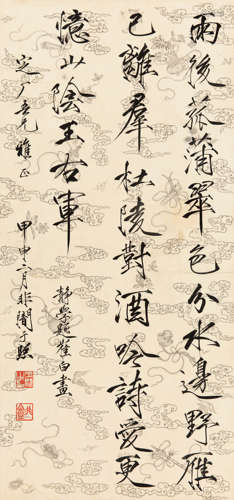 雨後菰蒲翠色分水邊野雁
已離群杜陵對酒吟詩愛更
憶山陰王右軍
靜學題崔白畫
定厂吾兄雅正
甲申二月非闇于照